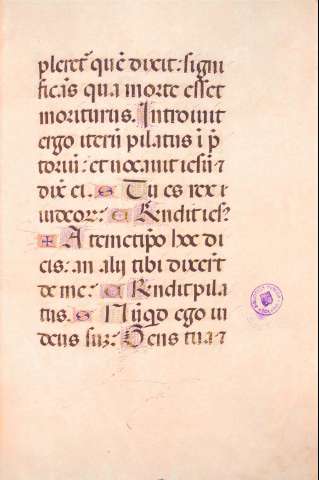 pleret᷒ quē dixit: signi
ficās qua morte esset
moriturus. Introiuit
ergo iterū pilatus ī p̄
toriū: et uocauit iesū ⁊
dix̄ ei. S Tu es rex i
udeorꝝ: C Rendit ies?
✠ A temetip̄o hoc di
cis: an alij tibi dixer̄t
de me: C Rendit pila
tus. S Nūqd ego iu
deus suꝫ: Gens tua ⁊